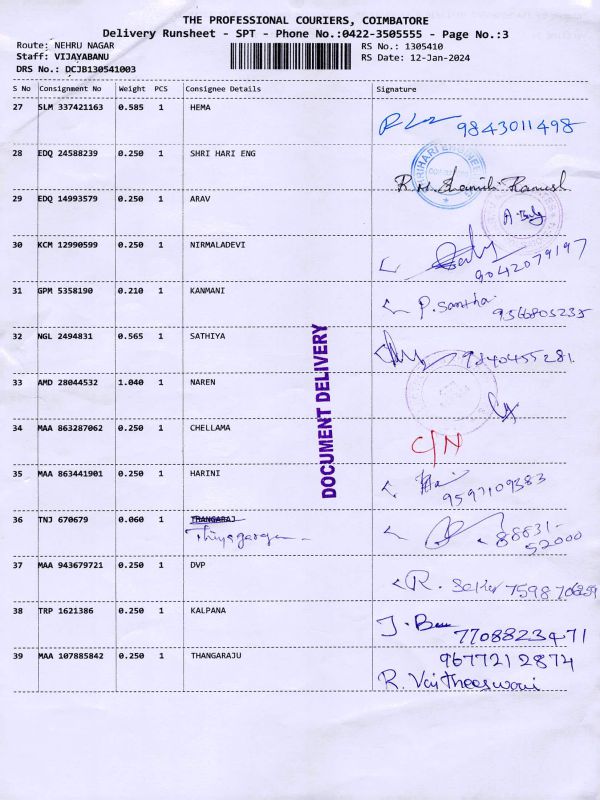 THE PROFESSIONAL COURIERS, COIMBATORE
Delivery Runsheet - SPT - Phone No.:0422-3505555 - Page No.:3
Route: NEHRU NAGAR
Staff: VIJAYABANU
DRS No.: DCJB130541003
RS No.: 1305410
RS Date: 12-Jan-2024
S No Consignment No Weight PCS Consignee Details Signature
27 SLM 337421163 0.585 1 HEMA
9843011498
28 EDQ 24588239 0.250 1 SHRI HARI ENG
29 EDQ 14993579 0.250 1 ARAV
30 KCM 12990599 0.250 1 NIRMALADEVI
9042079197
31 GPM 5358190 0.210 1 KANMANI
P. Santha
9566805235
32 NGL 2494831 0.565 1 SATHIYA
9840455281
DOCUMENT DELIVERY
33 AMD 28044532 1.040 1 NAREN
34 MAA 863287062 0.250 1 CHELLAMA
C/N
35 MAA 863441901 0.250 1 HARINI
9597109383
36 TNJ 670679 0.060 1 THANGARAJ
88831-
52000
37 MAA 943679721 0.250 1 DVP
R. Sekar
38 TRP 1621386 0.250 1 KALPANA
7708823471
39 MAA 107885842 0.250 1 THANGARAJU
9677212874
R. Vaitheeswari